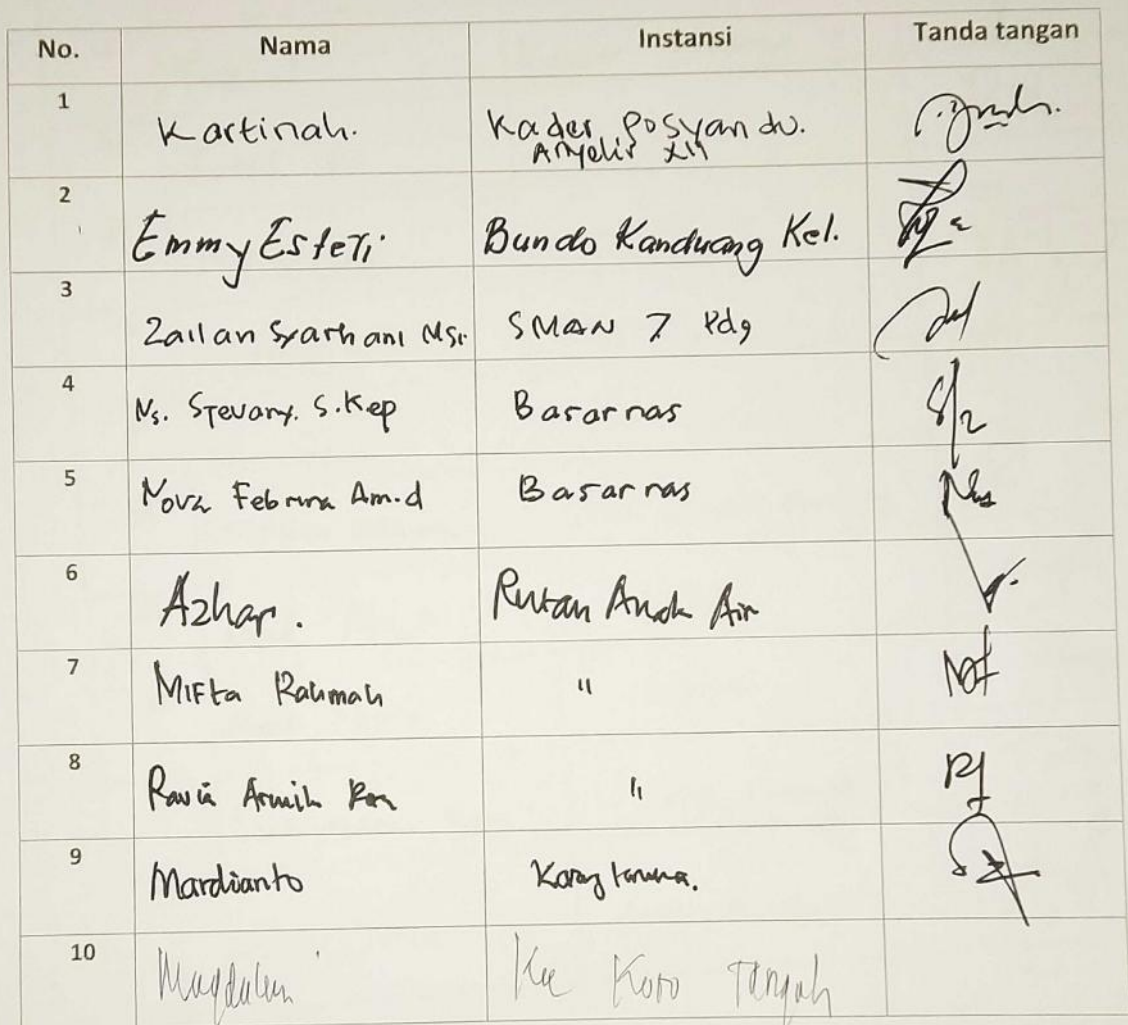 No. Nama Instansi Tanda tangan
1 Kartinah. Kader Posyandu.
Anyelir XII
2 Emmy Esteti Bundo Kanduang Kel.
3 Zailan Syarhani MSi SMAN 7 Pdg
4 Ns. Stevany. S.Kep Basarnas
5 Nova Febrina Am.d Basarnas
6 Azhar. Rutan Anak Air
7 Mifta Rahmah "
8 "
9 Mardianto Karang taruna.
10 Koto Tangah